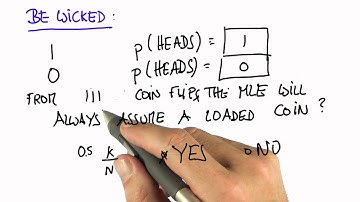 BE WICKED:
1 P(HEADS) = 1
0 P(HEADS) = 0
FROM 111 COIN FLIPS, THE MLE WILL
ALWAYS ASSUME A LOADED COIN?
0.5 K/N YES NO